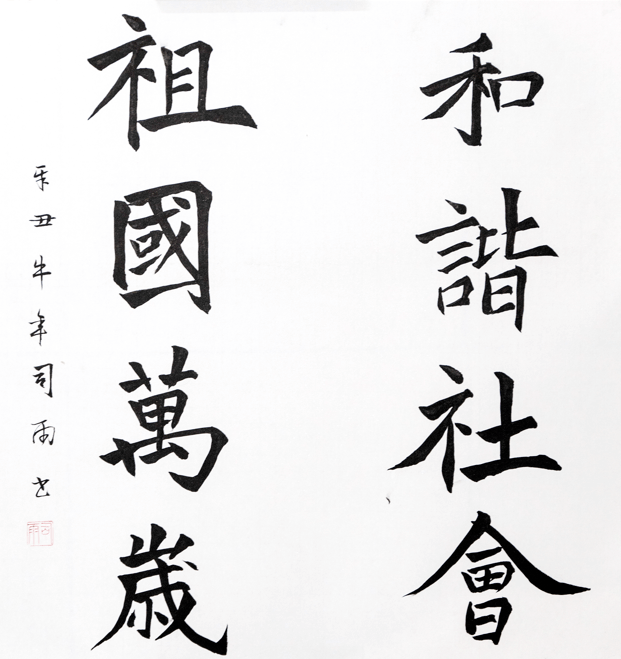 和諧社會
祖國萬歲
辛丑牛年司雨书